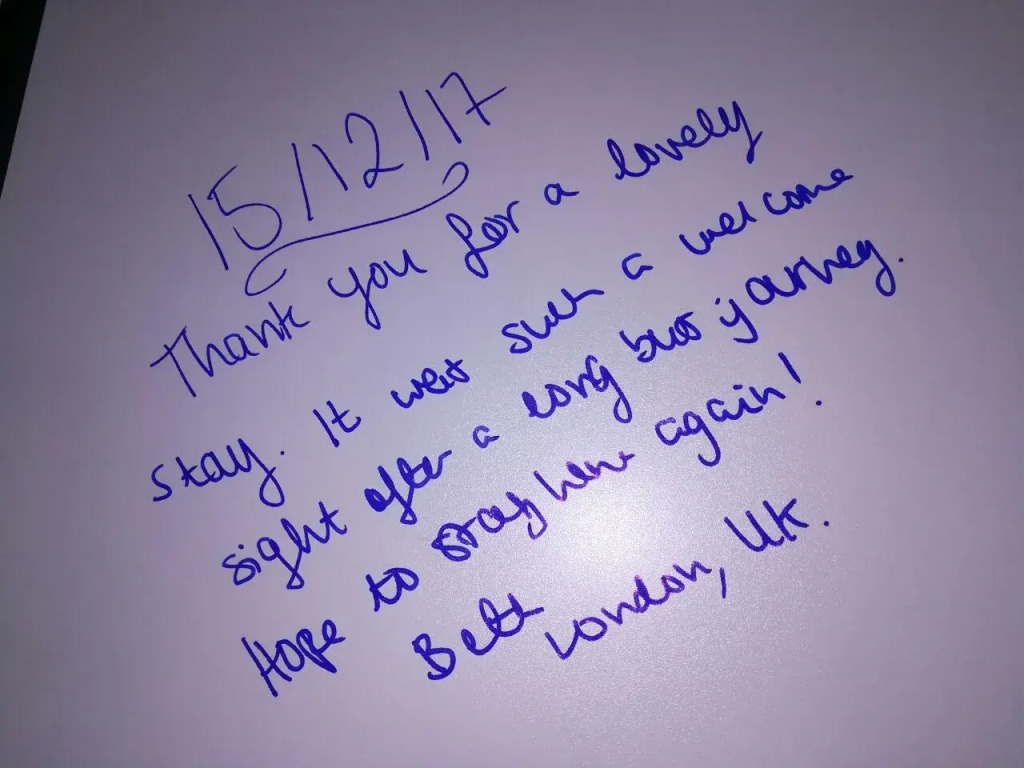 15/12/17
Thank you for a lovely
stay. It was such a welcome
sight after a long bus journey.
Hope to stay here again!
Beth
London, UK.